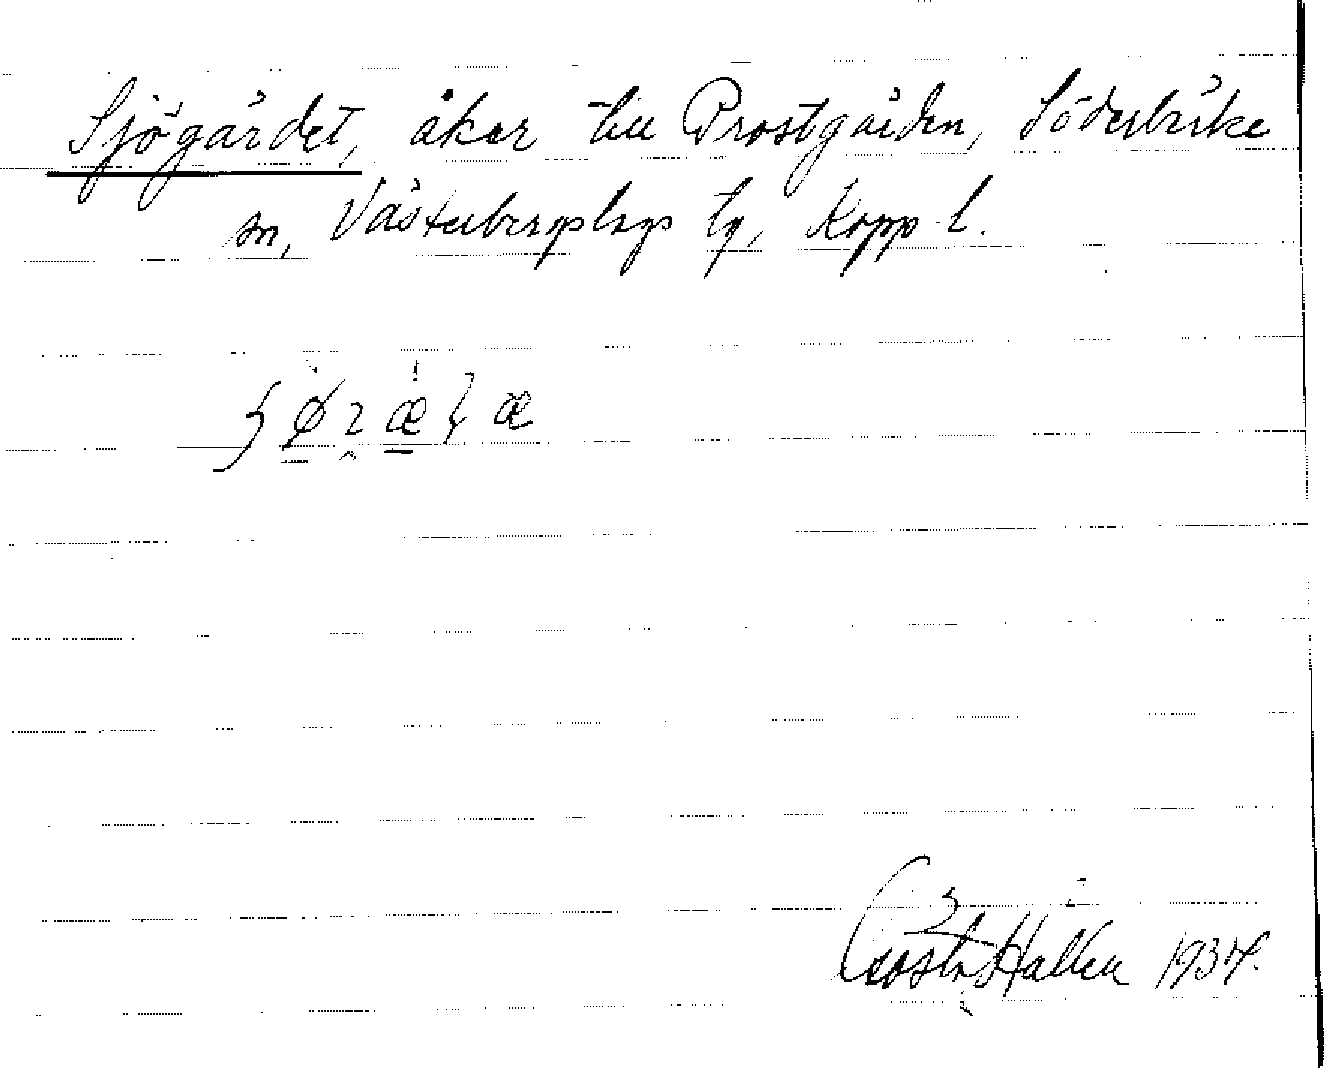 Sjögärdet, åker till Prostgården, Söderbärke
sn, Västerbergslags tg, Kopp. l.
Gösta Hallén 1934.